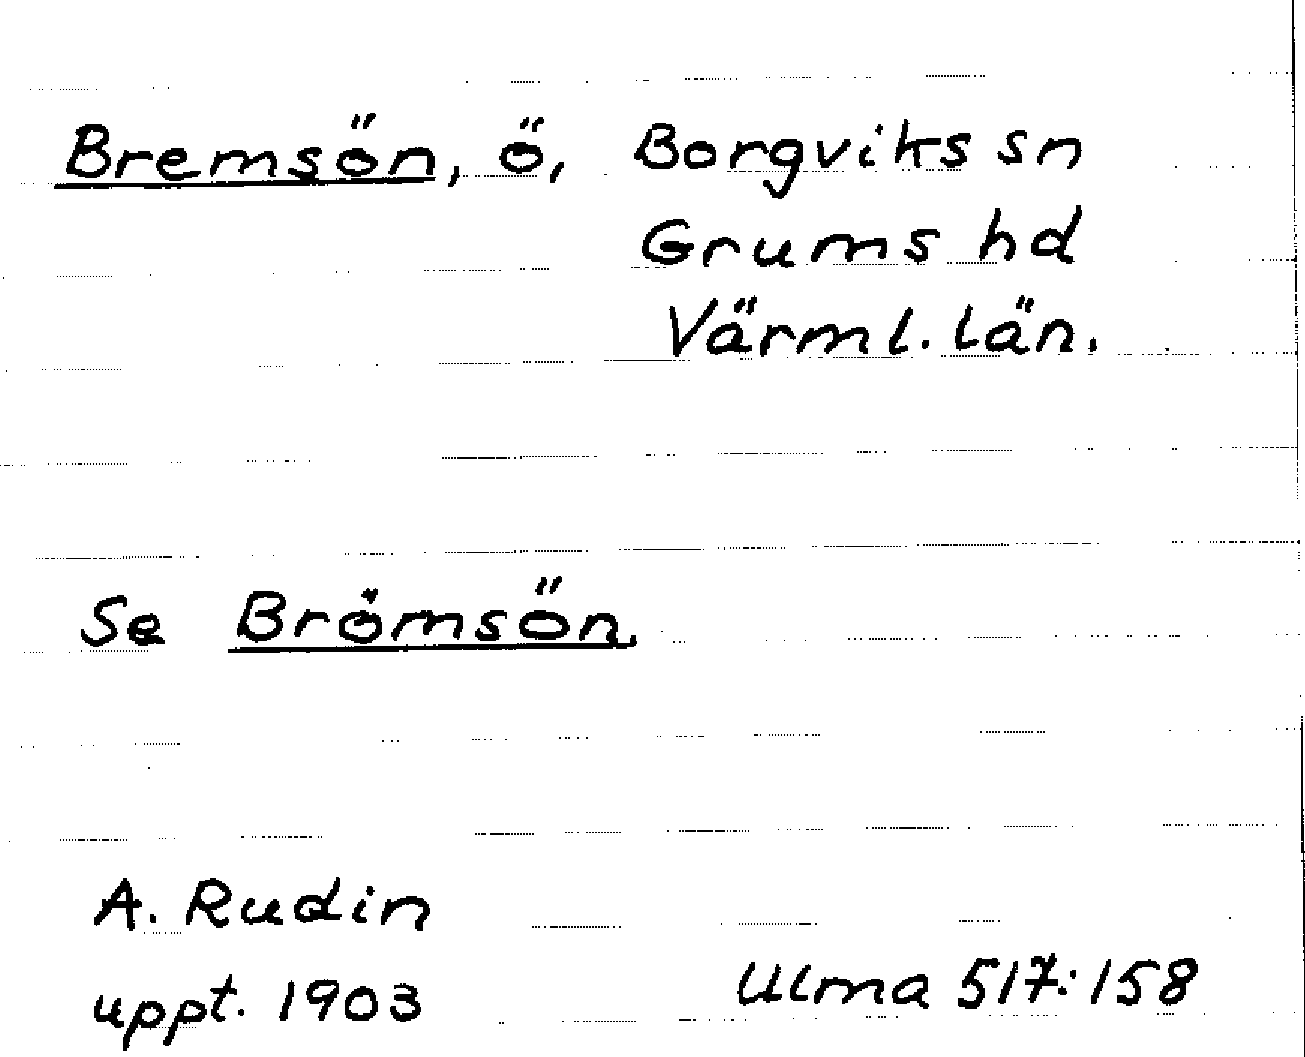 Bremsön, ö, Borgviks sn
Grums hd
Värml. län.
Se Brömsön.
A. Rudin
uppt. 1903
Ulma 517:158